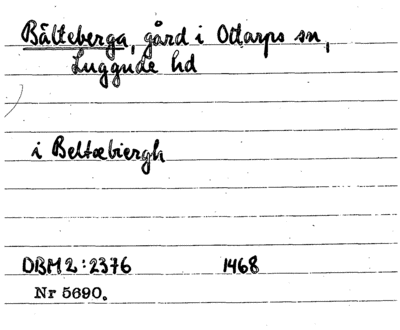 Bälteberga, gård i Ottarps sn,
Luggude hd
i Beltæbiergh
DBM 2:2376 1468
Nr 5690.